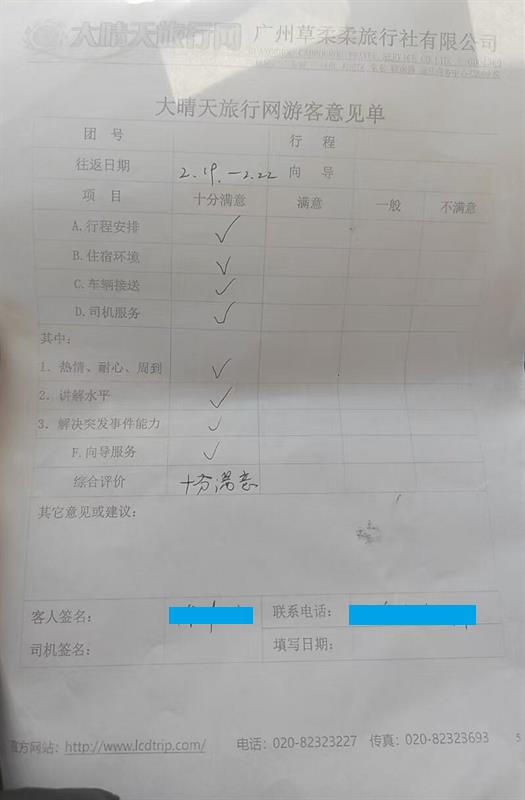 大晴天旅行网 广州草柔柔旅行社有限公司
大晴天旅行网游客意见单
团 号 行 程
往返日期 2.19.-2.22 向 导
项 目 十分满意 满意 一般 不满意
A.行程安排 ✓
B.住宿环境 ✓
C.车辆接送 ✓
D.司机服务 ✓
其中:
1. 热情、耐心、周到 ✓
2. 讲解水平 ✓
3. 解决突发事件能力 ✓
F.向导服务 ✓
综合评价 十分满意
其它意见或建议:
客人签名: 联系电话:
司机签名: 填写日期:
官方网站: http://www.lcdtrip.com/ 电话: 020-82323227 传真: 020-82323693 5